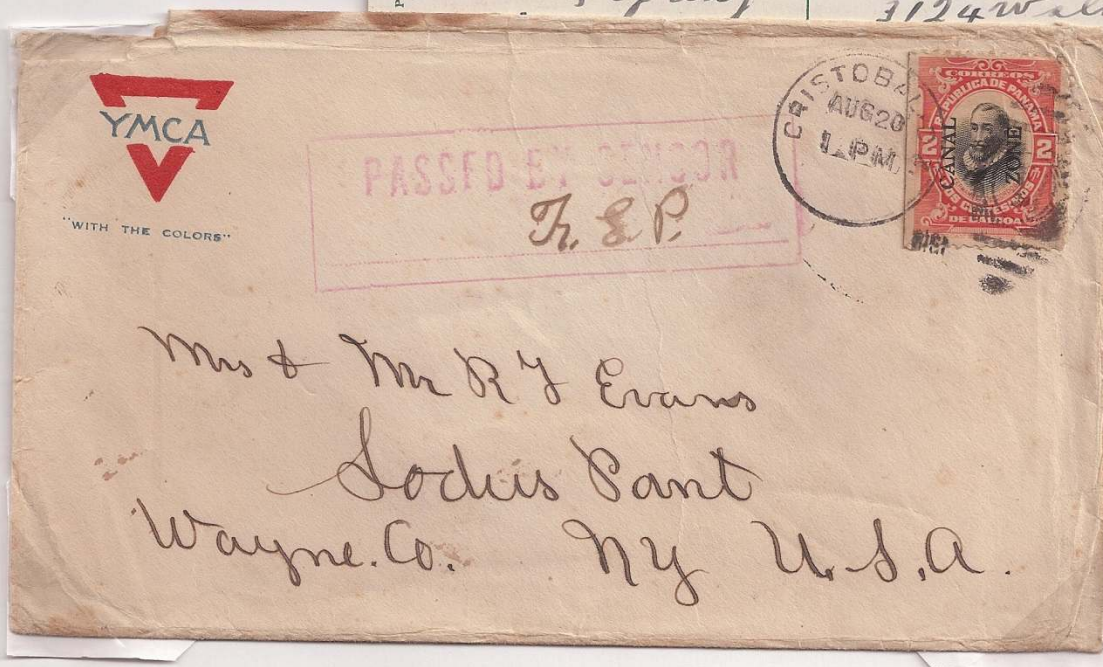 3124
YMCA
"WITH THE COLORS"
PASSED BY CENSOR
CRISTOBAL
AUG 20
1 PM
CORREOS
REPUBLICA DE PANAMA
2 CANAL ZONE 2
DE BALBOA
Mrs & Mr R F Evans
Sodus Point
Wayne. Co. NY U.S.A.